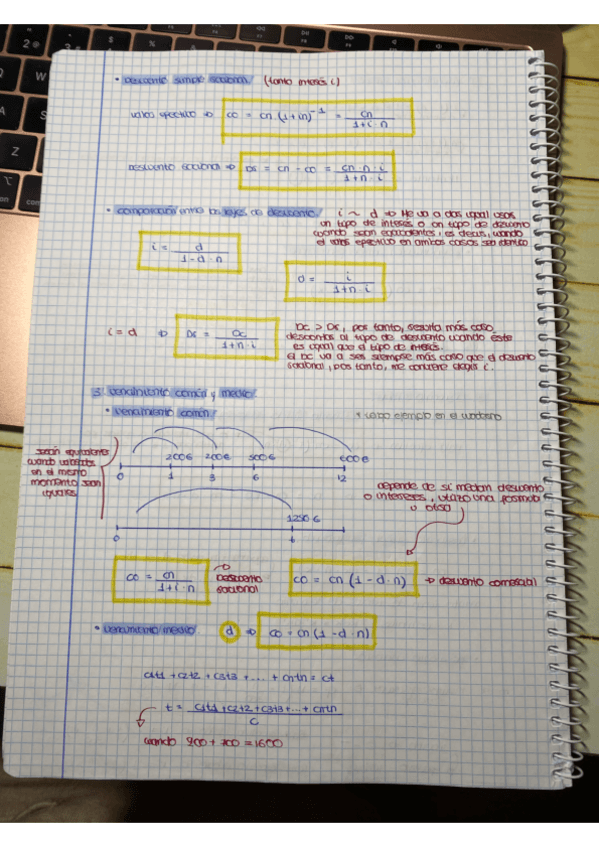 • Descuento simple racional (tanto interés i)
valor efectivo ⇒ C0 = Cn (1+in)⁻¹ = Cn / 1+i·n
Descuento racional ⇒ Dr = Cn - C0 = Cn·n·i / 1+n·i
• comparación entre las leyes de descuento
i ~ d ⇒ Me va a dar igual usar
un tipo de interés o un tipo de descuento
cuando sean equivalentes, es decir, cuando
el valor efectivo en ambos casos sea idéntico
i = d / 1-d·n
d = i / 1+n·i
i = d ⇒ Dr = Dc / 1+n·i
Dc > Dr, por tanto, resulta más caro
descontar al tipo de descuento cuando éste
es igual que el tipo de interés.
El Dc va a ser siempre más caro que el descuento
racional, por tanto, me conviene elegir i.
3. vencimiento común y medio
• vencimiento común
* cada ejemplo en el cuaderno
serán equivalentes
cuando valorados
en el mismo
momento sean
iguales
200€ 200€ 500€ 600€
0 1 3 6 12
depende de si me dan descuento
o intereses, utilizo una fórmula
u otra
1250€
0 t
C0 = Cn / 1+i·n
Descuento
racional
C0 = Cn (1-d·n) → descuento comercial
• vencimiento medio d ⇒ C0 = Cn (1-d·n)
C1t1 + C2t2 + C3t3 + .... + Cntn = Ct
t = C1t1 + C2t2 + C3t3 + ... + Cntn / C
cuando 900 + 700 = 1600